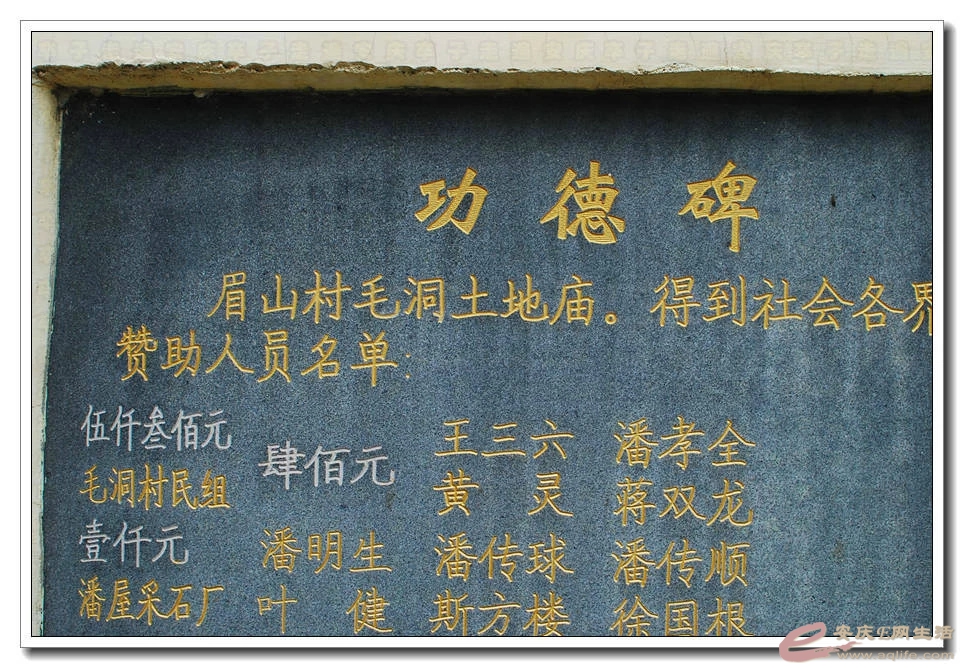 功德碑
眉山村毛洞土地庙。得到社会各界
赞助人员名单:
伍仟叁佰元
毛洞村民组
壹仟元
潘屋采石厂
肆佰元
潘明生
叶健
王三六
黄灵
潘传球
斯方楼
潘孝全
蒋双龙
潘传顺
徐国根
安庆E网生活
www.aqlife.com